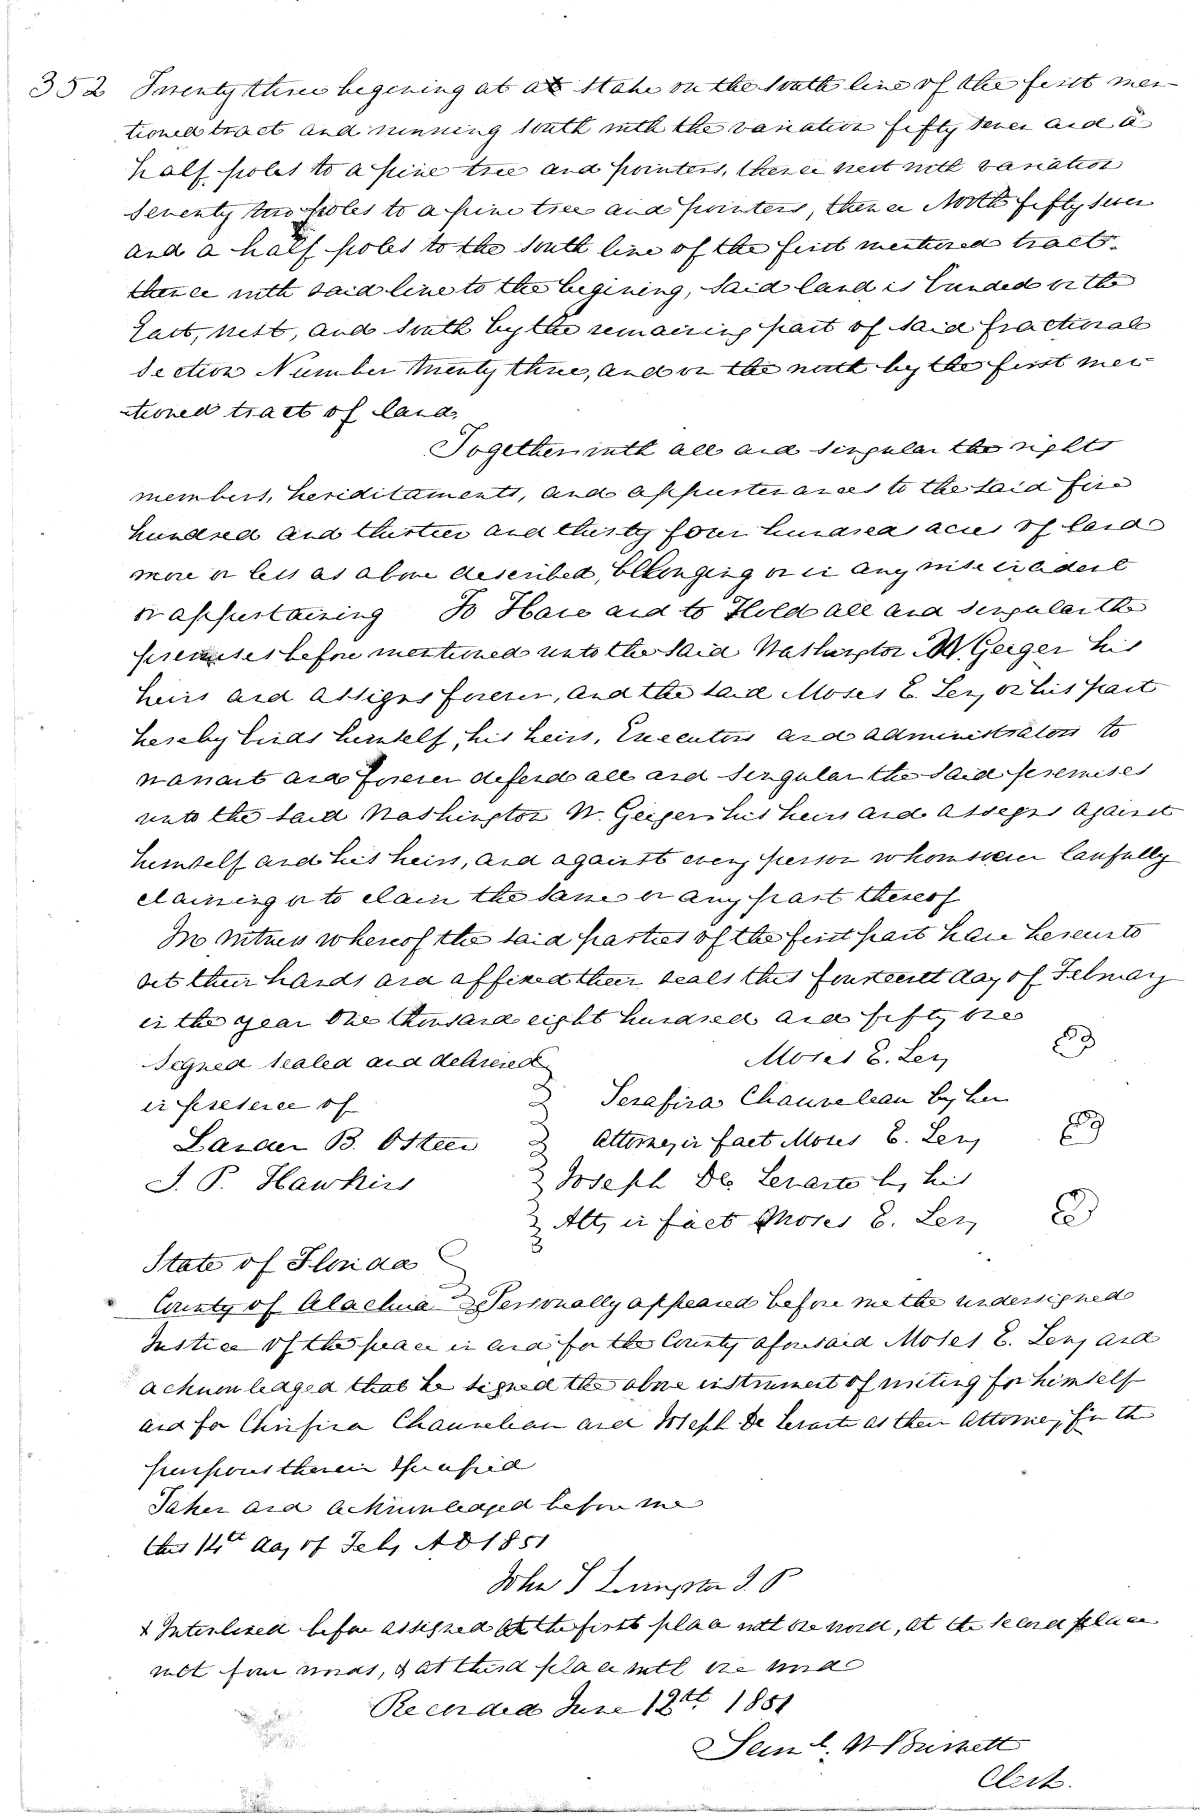 352 Twenty three begening at at Stake on the South line of the first men-
tioned tract and running South with the variation fifty seven and a
half poles to a pine tree and pointers, thence west with variation
Seventy two poles to a pine tree and pointers, thence North fifty seven
and a half poles to the South line of the first mentioned tract.
thence with said line to the begining, Said land is bunded on the
East, west, and South by the remaining part of Said fractional
Section Number twenty three, and on the north by the first men-
-tioned tract of land.
Together with all and singular the rights
members, heriditaments, and appurtenances to the said five
hundred and thirteen and thirty four hundred acres of land
more or less as above described, bellonging or in any wise incident
or appertaining To Have and to Hold all and singular the
premises before mentioned unto the Said Washington W. Geiger his
heirs and assigns forever, and the said Moses E. Levy on his part
hereby binds himself, his heirs, Executors and administrators to
warrant and forever defend all and singular the Said premises
unto the said Washington W. Geiger his heirs and assigns against
himself and his heirs, and against every person whomsoever lawfully
claiming or to claim the same or any part thereof
In witness whereof the said parties of the first part have hereunto
set their hands and affixed their seals this fourteenth day of February
in the year One thousand eight hundred and fifty one
Signed sealed and delivered Moses E. Levy
in presence of Serafina Chauveleau by her
Lander B. Osteen Attorney in fact Moses E. Levy
J. P. Hawkins Joseph De Levarte by his
Atty in fact Moses E. Levy
State of Florida
County of Alachua Personally appeared before me the undersigned
Justice of the peace in and for the County aforesaid Moses E. Levy and
acknowledged that he signed the above instrument of writing for himself
and for Chauveleau and Joseph De Levarte as their Attorney for the
purposes therein specified
Taken and acknowledged before me
this 14th day of Feby A D 1851
John S Livingston J. P
x Interlined before assigned at the first place with one word, at the second place
with four words, & at third place with one word
Recorded June 12th 1851
Saml. W Burnett
Clerk.